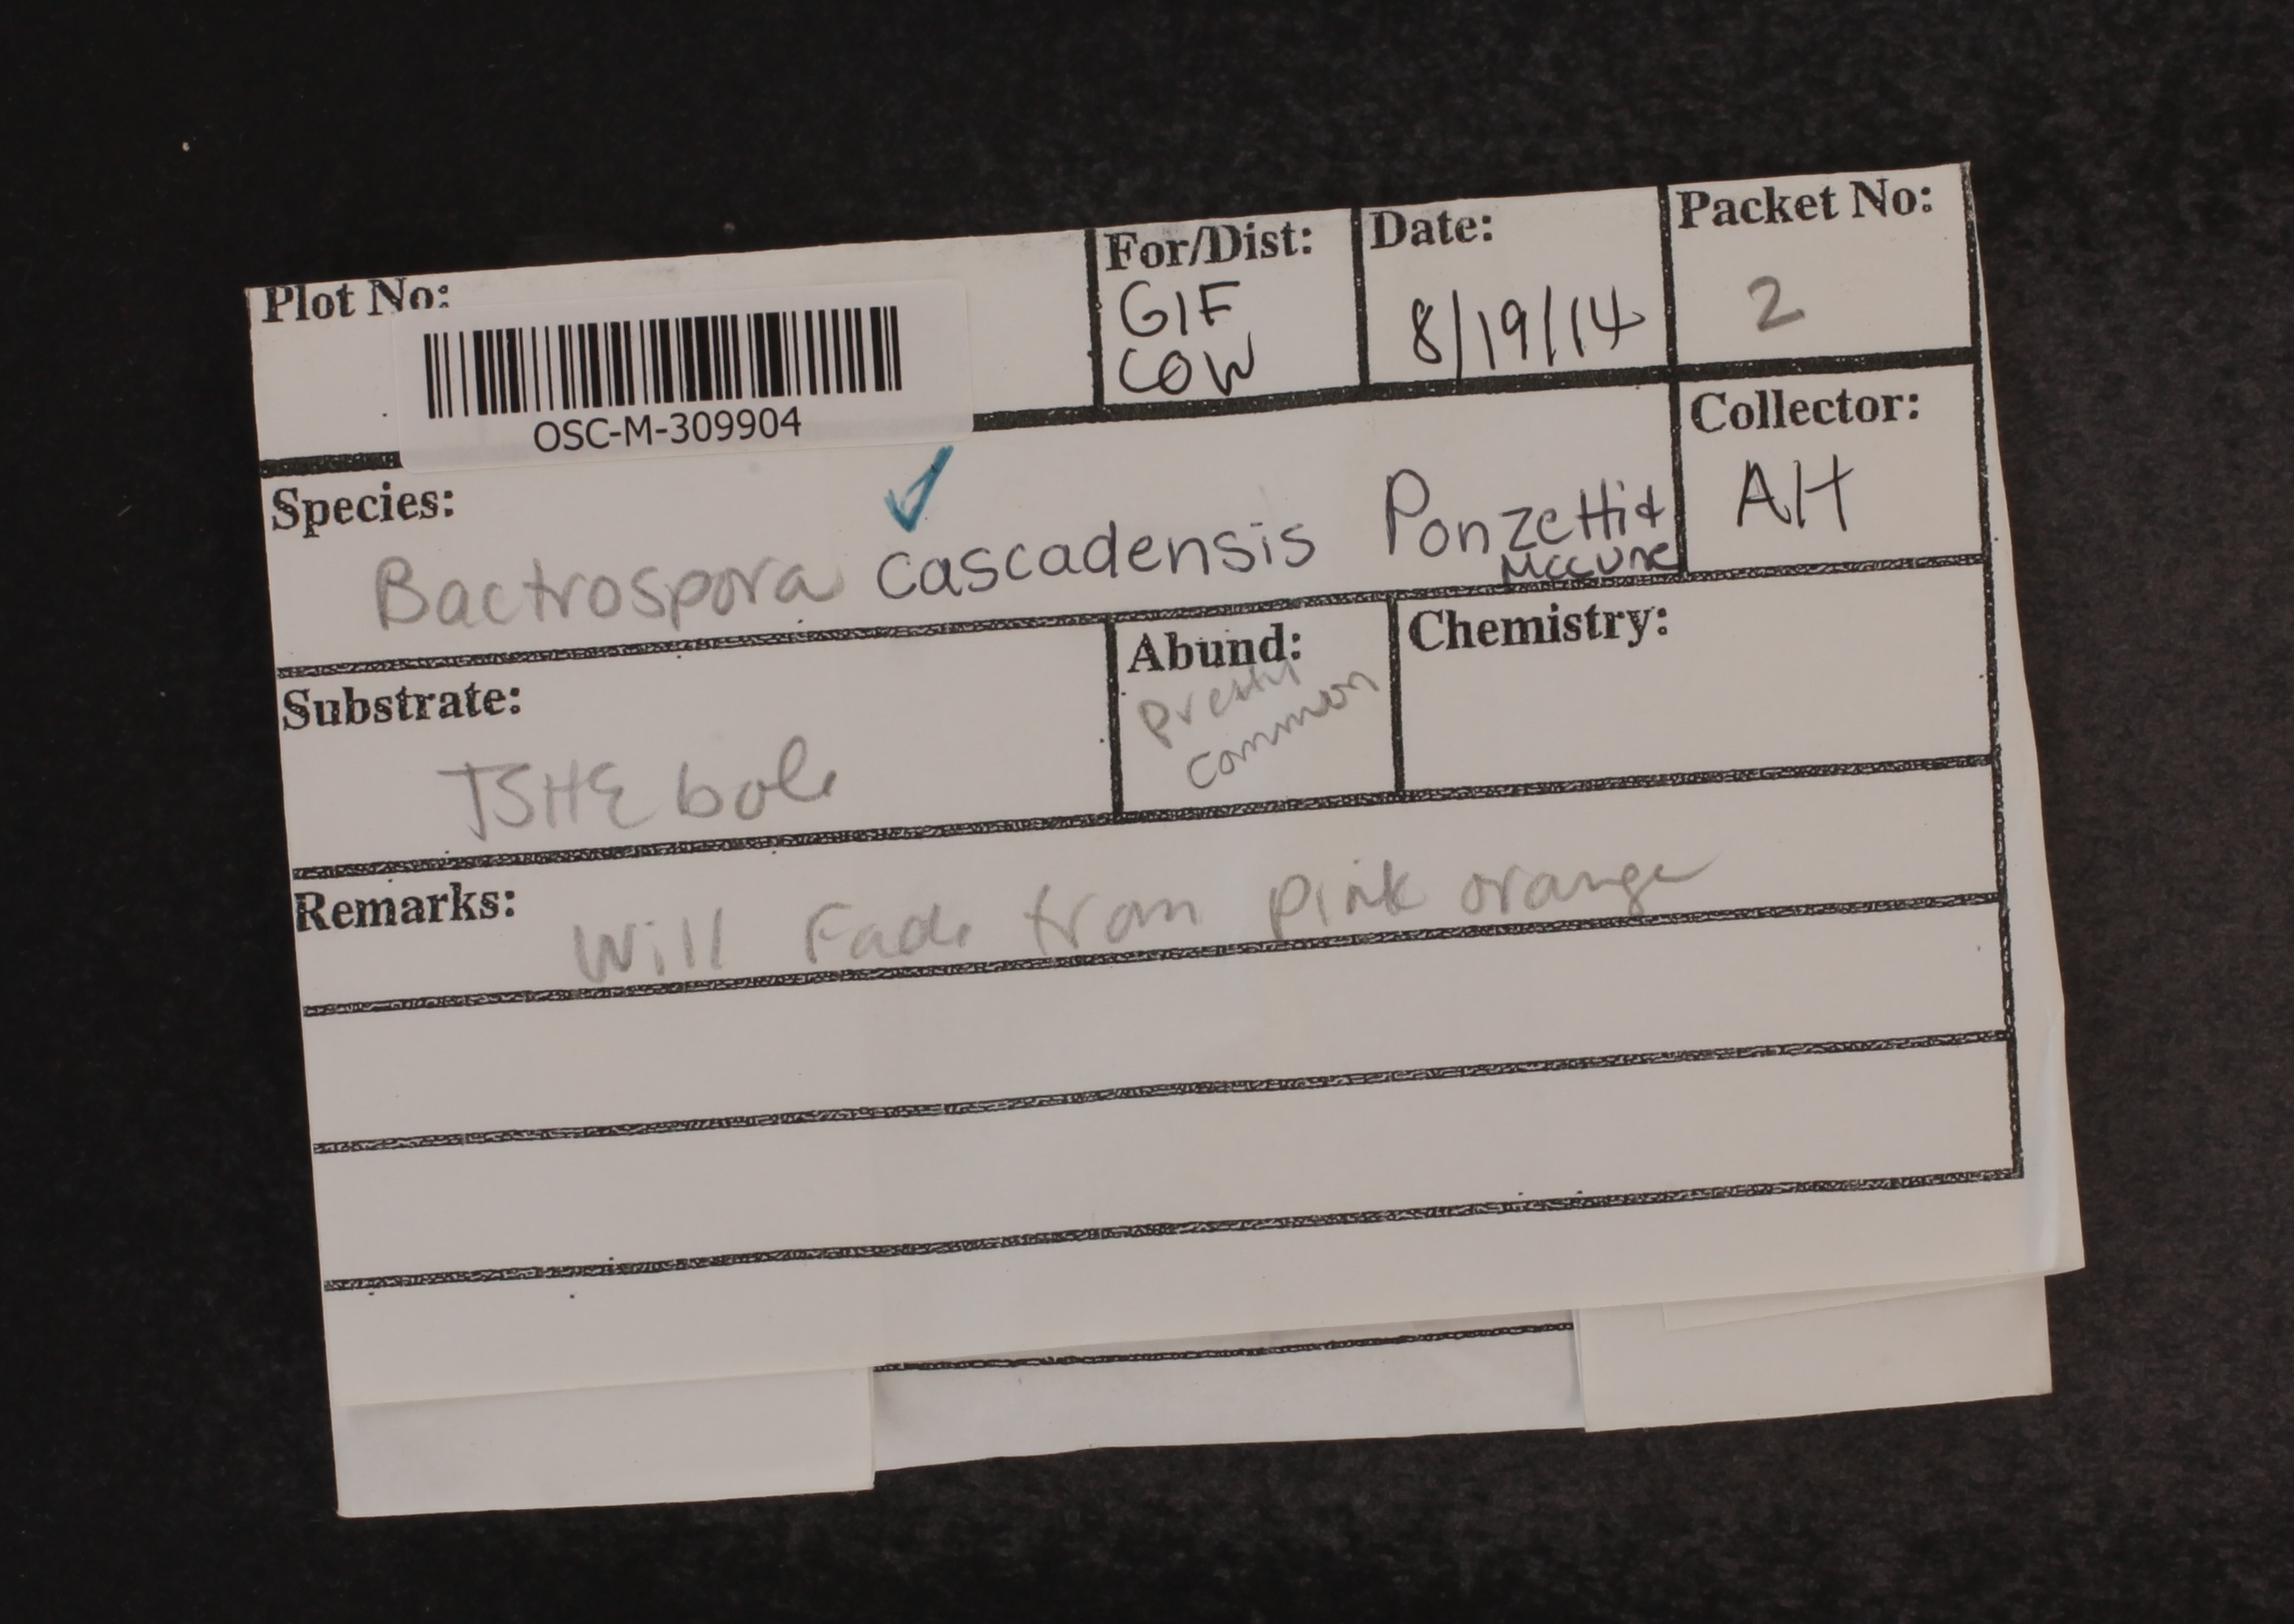 Plot No:
OSC-M-309904
For/Dist:
GIF
COW
Date:
8/19/14
Packet No:
2
Species:
Bactrospora cascadensis Ponzetti &
McCune
Collector:
AH
Substrate:
TSHE bole
Abund:
Pretty
common
Chemistry:
Remarks:
Will Fade from pink orange